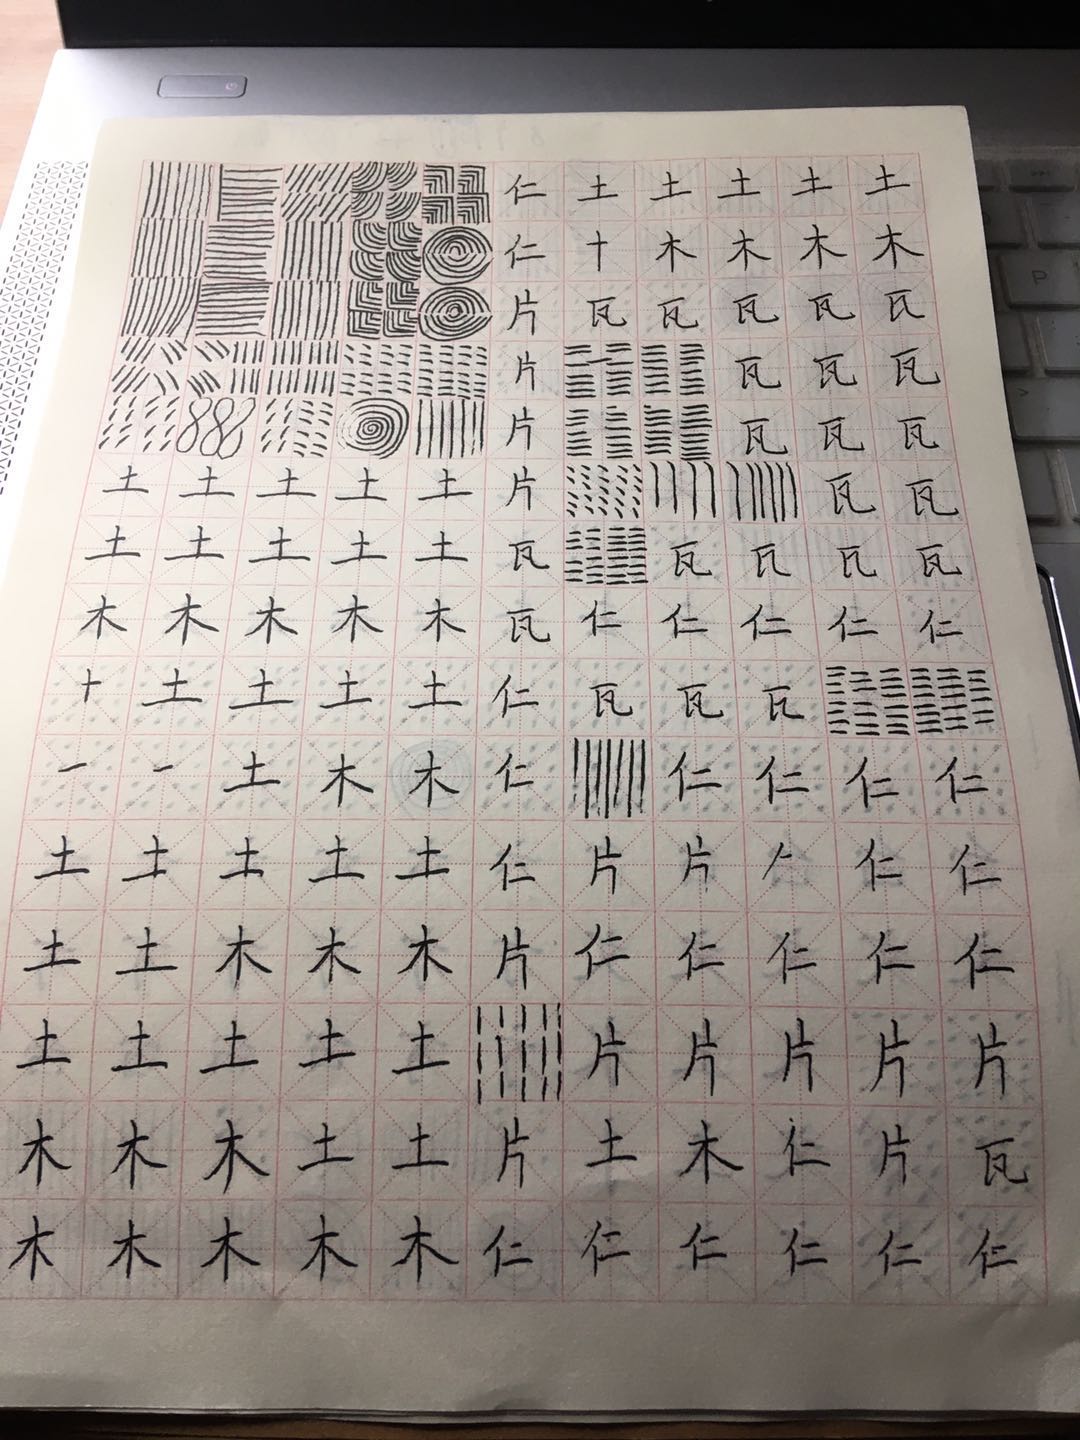 仁土土土土土
仁十木木木木
片瓦瓦瓦瓦瓦
片瓦瓦瓦
片瓦瓦瓦
土土土土土片瓦瓦
土土土土土瓦瓦瓦瓦瓦
木木木木木瓦仁仁仁仁仁
十土土土土仁瓦瓦瓦
一一土木木仁仁仁仁仁
土土土土土仁片片仁仁
土土木木木片仁仁仁仁仁
土土土土土片片片片片
木木木土土片土木仁片瓦
木木木木木仁仁仁仁仁仁
P